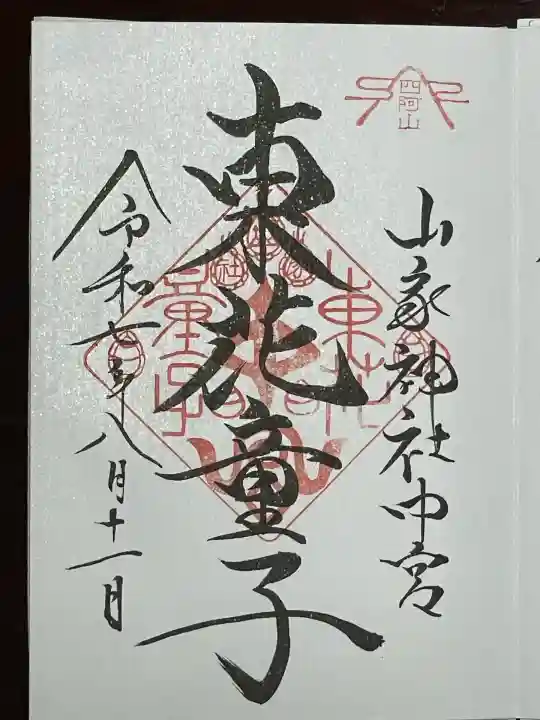 四阿山
山家神社中宮
東花童子
令和七年八月十一日
東花
童子